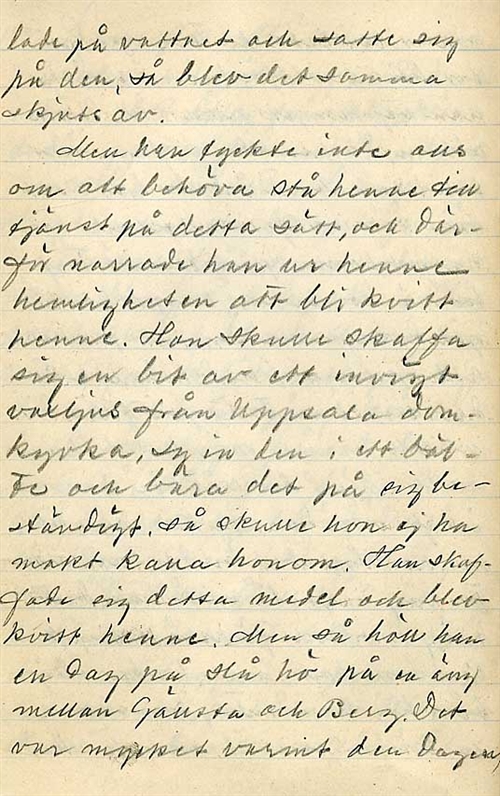 lade på vattnet och satte sig
på den, så blev det samma
skjuts av.
Men han tyckte inte alls
om att behöva stå henne till
tjänst på detta sätt, och där-
för narrade han ur henne
hemligheten att bli kvitt
henne. Han skulle skaffa
sig en bit av ett invigt
vaxljus från Uppsala dom-
kyrka, sy in den i ett bäl-
te och bära det på sig be-
ständigt, så skulle hon ej ha
makt kalla honom. Han skaf-
fade sig detta medel och blev
kvitt henne. Men så höll han
en dag på slå hö på en äng
mellan Gänsta och Berg. Det
var mycket varmt den dagen,